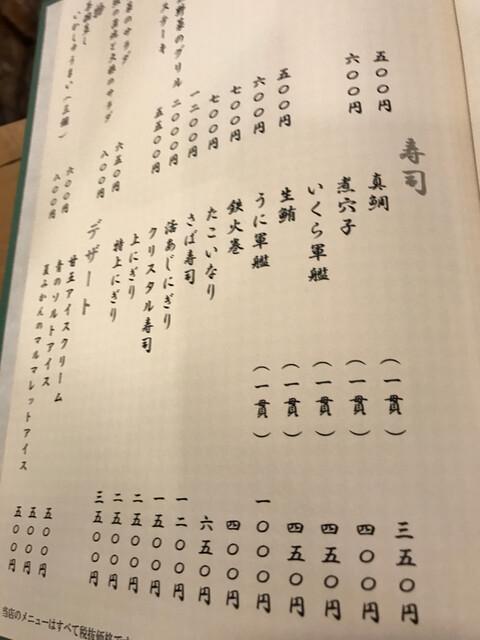 五〇〇円
六〇〇円
五〇〇円
六〇〇円
七〇〇円
七〇〇円
野菜のグリル 一二〇〇円
ステーキ 二〇〇〇円
五五〇〇円
菜のサラダ 六五〇円
大根のサラダ 八〇〇円
六〇〇円
いかしゅうまい（三個） 八〇〇円
寿司
真鯛 （一貫） 三五〇円
煮穴子 （一貫） 四〇〇円
いくら軍艦 （一貫） 四五〇円
生鮪 （一貫） 四五〇円
うに軍艦 （一貫） 一〇〇〇円
鉄火巻 四〇〇円
たこいなり 六五〇円
さば寿司 一二〇〇円
活あじにぎり 一五〇〇円
クリスタル寿司 二五〇〇円
上にぎり 二五〇〇円
特上にぎり 三五〇〇円
デザート
甘王アイスクリーム 五〇〇円
青のソルトアイス 五〇〇円
夏みかんのマルマレットアイス 五〇〇円
当店のメニューはすべて税抜価格で